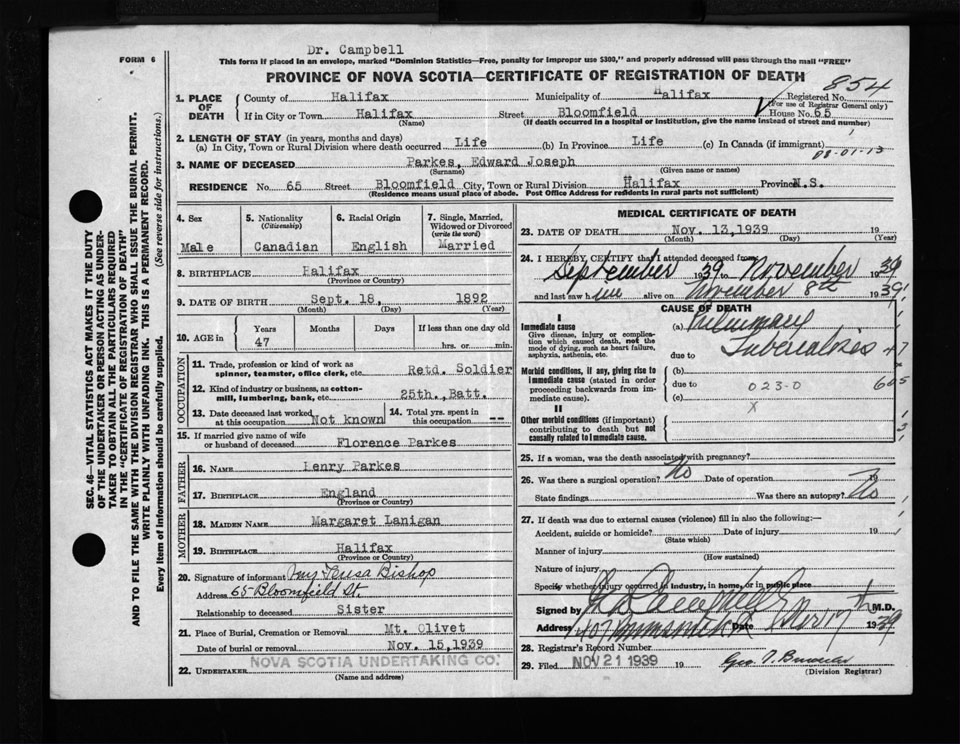 Dr. Campbell
FORM 6
This form if placed in an envelope, marked "Dominion Statistics—Free, penalty for improper use $300," and properly addressed will pass through the mail "FREE"
PROVINCE OF NOVA SCOTIA—CERTIFICATE OF REGISTRATION OF DEATH
854
1. PLACE OF DEATH
County of Halifax Municipality of Halifax Registered No.
(For use of Registrar General only)
If in City or Town Halifax Street Bloomfield House No. 65
(Name) (If death occurred in a hospital or institution, give the name instead of street and number)
2. LENGTH OF STAY (in years, months and days)
(a) In City, Town or Rural Division where death occurred Life (b) In Province Life (c) In Canada (if immigrant)
08-01-13
3. NAME OF DECEASED Parkes, Edward Joseph
(Surname) (Given name or names)
RESIDENCE No. 65 Street Bloomfield City, Town or Rural Division Halifax Province N.S.
(Residence means usual place of abode. Post Office Address for residents in rural parts not sufficient)
4. Sex
Male
5. Nationality
(Citizenship)
Canadian
6. Racial Origin
English
7. Single, Married, Widowed or Divorced
(write the word)
Married
8. BIRTHPLACE Halifax
(Province or Country)
9. DATE OF BIRTH Sept. 18, 1892
(Month) (Day) (Year)
10. AGE in Years Months Days If less than one day old
47 hrs. or min.
OCCUPATION
11. Trade, profession or kind of work as spinner, teamster, office clerk, etc. Retd. Soldier
12. Kind of industry or business, as cotton-mill, lumbering, bank, etc. 25th., Batt.
13. Date deceased last worked at this occupation Not known
14. Total yrs. spent in this occupation --
15. If married give name of wife or husband of deceased Florence Parkes
FATHER
16. NAME Lenry Parkes
17. BIRTHPLACE England
(Province or Country)
MOTHER
18. MAIDEN NAME Margaret Lanigan
19. BIRTHPLACE Halifax
(Province or Country)
20. Signature of informant Bishop
Address 65 Bloomfield St.
Relationship to deceased Sister
21. Place of Burial, Cremation or Removal Mt. Olivet
Date of burial or removal Nov. 15, 1939
22. UNDERTAKER NOVA SCOTIA UNDERTAKING CO.
(Name and address)
MEDICAL CERTIFICATE OF DEATH
23. DATE OF DEATH Nov. 13, 1939
(Month) (Day) (Year)
24. I HEREBY CERTIFY that I attended deceased from
September 1939 to November 1939
and last saw him alive on November 8th 1939
CAUSE OF DEATH
I
Immediate cause
Give disease, injury or complication which caused death, not the mode of dying, such as heart failure, asphyxia, asthenia, etc.
(a) Pulmonary
due to Tuberculosis
47
Morbid conditions, if any, giving rise to immediate cause (stated in order proceeding backwards from immediate cause).
(b)
due to 023-0
605
(c)
x
II
Other morbid conditions (if important) contributing to death but not causally related to immediate cause.
25. If a woman, was the death associated with pregnancy?
26. Was there a surgical operation? No Date of operation 19
State findings Was there an autopsy? No
27. If death was due to external causes (violence) fill in also the following:—
Accident, suicide or homicide? Date of injury 19
(State which)
Manner of injury
(How sustained)
Nature of injury
Specify whether injury occurred in industry, in home, or in public place
Signed by M.D.
Address 407 Date Nov 17th 1939
28. Registrar's Record Number
29. Filed NOV 21 1939 19 Geo.
(Division Registrar)
SEC. 46—VITAL STATISTICS ACT MAKES IT THE DUTY
OF THE UNDERTAKER OR PERSON ACTING AS UNDER-
TAKER TO OBTAIN ALL THE PARTICULARS REQUIRED
IN THE "CERTIFICATE OF REGISTRATION OF DEATH"
AND TO FILE THE SAME WITH THE DIVISION REGISTRAR WHO SHALL ISSUE THE BURIAL PERMIT.
WRITE PLAINLY WITH UNFADING INK. THIS IS A PERMANENT RECORD.
Every item of Information should be carefully supplied. (See reverse side for instructions.)